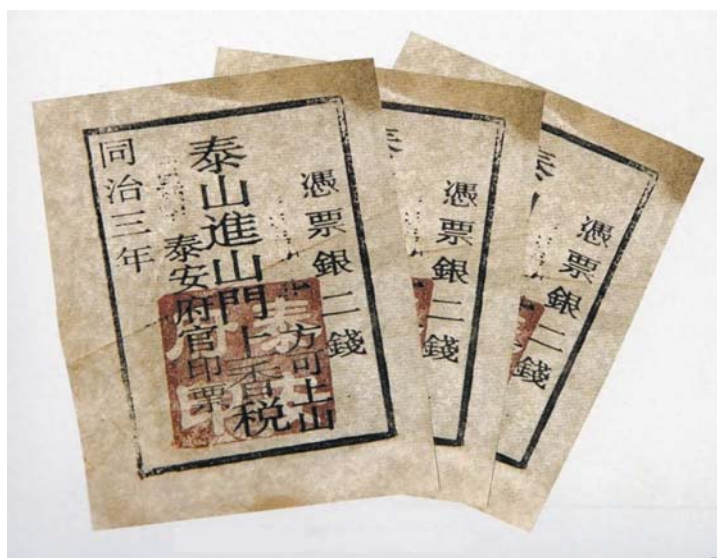 憑票銀二錢
方可土山
泰山進山門上香税
泰安府官印票
同治三年
泰安府印
憑票銀二錢
憑票銀二錢